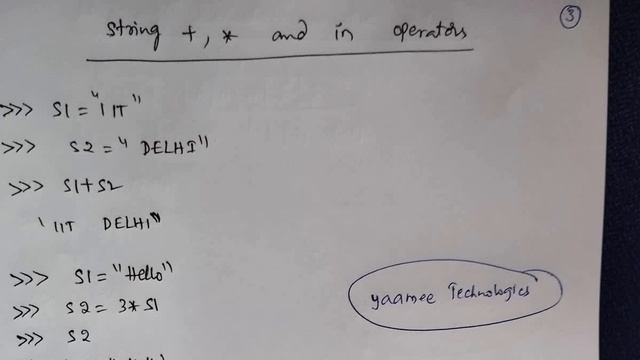 3
String +, * and in operators
>>> S1 = "IIT"
>>> S2 = " DELHI"
>>> S1+S2
'IIT DELHI"
>>> S1 = "Hello"
>>> S2 = 3*S1
>>> S2
yaamee Technologics